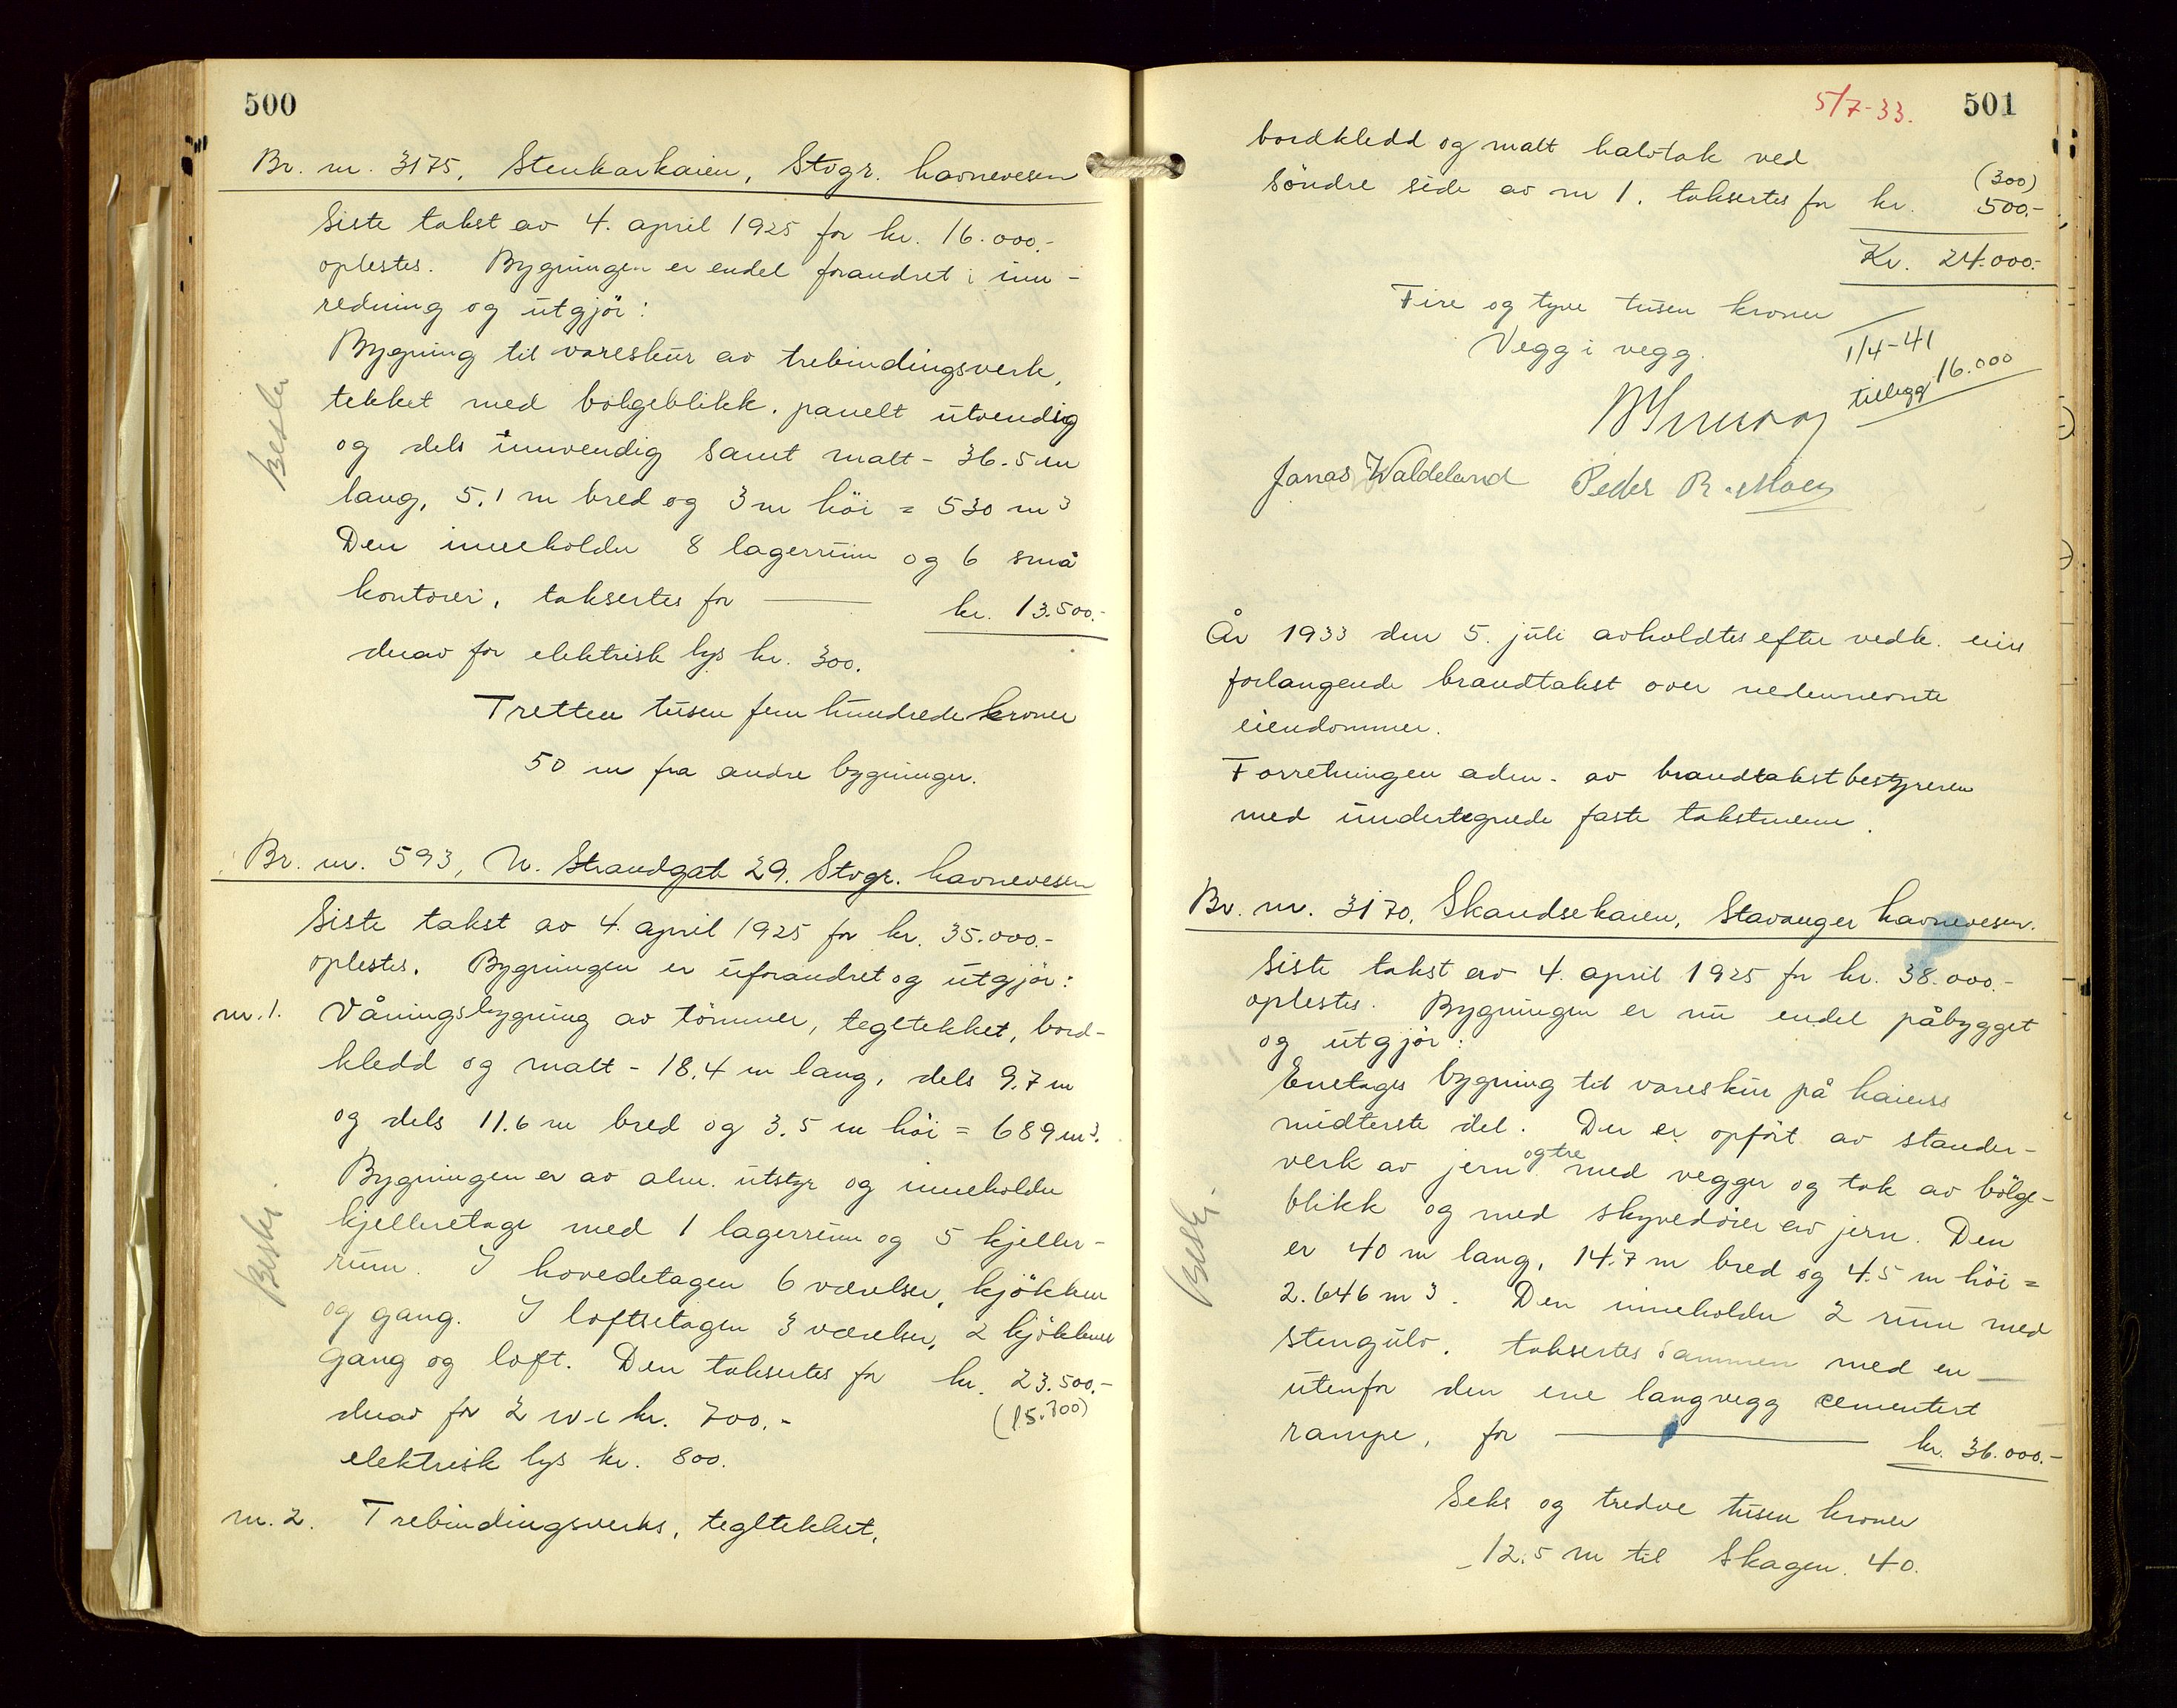 500
Br. nr. 3175, Stenkarkaien, Stvgr. havnevesen
Siste takst av 4. april 1925 for kr. 16.000.-
oplestes. Bygningen er endel forandret i inn-
redning og utgjör:
Bygning til vareskur av trebindingsverk,
tekket med bölgeblikk, panelt utvendig
og dels innvendig samt malt - 36.5 m
lang, 5,1 m bred og 3 m höi = 530 m3
Den inneholder 8 lagerrum og 6 små
kontorer, taksertes for kr. 13.500.-
derav for elektrisk lys kr. 300.
Tretten tusen fem hundrede kroner
50 m fra andre bygninger.
Br. nr. 593, N. Strandgate 29. Stvgr. havnevesen
Siste takst av 4. april 1925 for kr. 35.000.-
oplestes. Bygningen er uforandret og utgjör:
nr. 1. Våningsbygning av tömmer, tegltekket, bord-
kledd og malt - 18,4 m lang, dels 9.7 m
og dels 11.6 m bred og 3.5 m höi = 689 m3.
Bygningen er av alm. utstyr og inneholder
kjelleretage med 1 lagerrum og 5 kjeller-
rum. I hovedetagen 6 værelser, kjökken
og gang. I loftsetagen 3 værelser, 2 kjökkener
gang og loft. Den taksertes for kr. 23.500.-
(15.700)
derav for 2 w-c kr. 700.-
elektrisk lys kr. 800.
nr. 2. Trebindingsverks, tegltekket,
5/7-33. 501
bordkledd og malt halvtak ved
(300)
söndre side av nr 1. taksertes for kr. 500.-
Kr. 24.000.-
Fire og tyve tusen kroner
Vegg i vegg.
1/4-41
tillegg 16.000
Jonas Waldeland Peder R. Moen
År 1933 den 5. juli avholdtes efter vedk. eiers
forlangende brandtakst over nedennevnte
eiendommer.
Forretningen adm. av brandtakstbestyreren
med undertegnede faste takstmenn.
Br. nr. 3170. Skandsekaien, Stavanger havnevesen.
Siste takst av 4. april 1925 for kr. 38.000.-
oplestes. Bygningen er nu endel påbygget
og utgjör:
Enetages bygning til vareskur på kaiens
midterste del. Den er opfört av stender-
verk av jern og tre med vegger og tak av bölge-
blikk og med skyvedörer av jern. Den
er 40 m lang, 14.7 m bred og 4.5 m höi =
2.646 m3. Den inneholder 2 rum med
stengulv, taksertes sammen med en
utenfor den ene langvegg cementert
rampe, for kr. 36.000.-
Seks og tredve tusen kroner
12.5 m til Skagen 40.